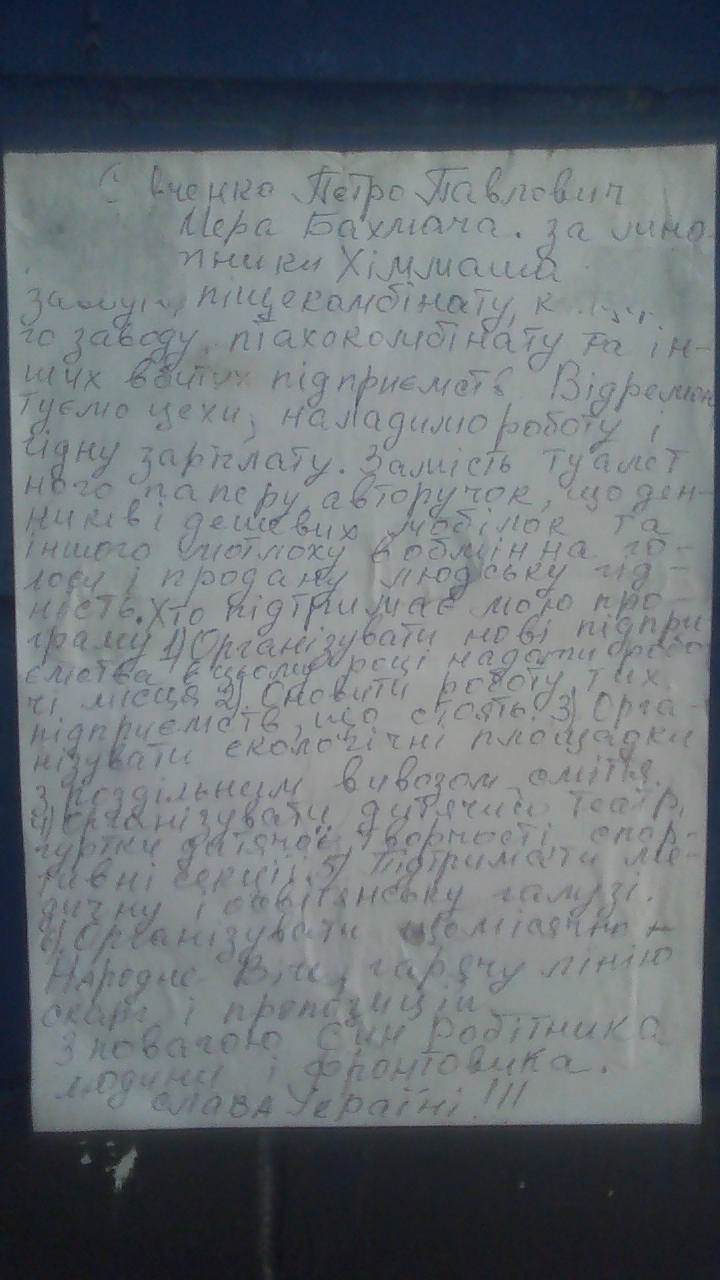 вченко Петро Павлович
Мера Бахмача. за
пники Хіммаша
піщекомбінату,
го заводу, птахокомбінату та ін-
ших вбитих підприємств Відремон
туємо цехи, наладимо роботу і
гідну зарплату. Замість туалет
ного паперу, авторучок, щоден-
ників і дешевих мобілок та
іншого мотлоху в обмін на го-
лоси і продану людську гід-
ність. Хто підтримає мою про-
граму 1) Організувати нові підпри
ємства в цьому році надати робо
чі місця 2) Оновити роботу тих
підприємств, що стоять. 3) Орга-
нізувати екологічні площадки
з роздільним вивозом сміття.
4) Організувати дитячий театр,
гуртки дитячої творчості, спор-
тивні секції. 5) Підтримати ме-
дичну і освітянську галузі.
6) Організувати щомісячно
Народне Віче, гарячу лінію
скарг і пропозицій
З повагою Син робітника
людини і фронтовика.
Слава Україні!!!